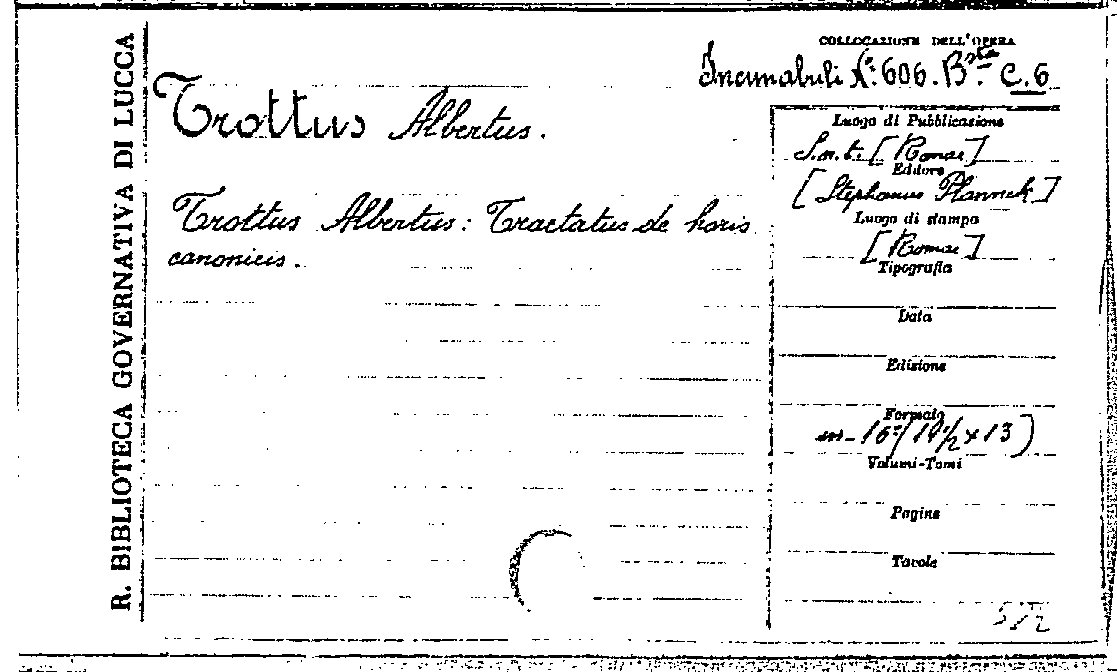 R. BIBLIOTECA GOVERNATIVA DI LUCCA
COLLOCAZIONE DELL'OPERA
Incunabuli N.º 606. Bsta C. 6
Trottus Albertus.
Trottus Albertus: Tractatus de horis
canonicis.
Luogo di Pubblicazione
S.n.t. [Romae]
Editore
[Stephanus Plannck]
Luogo di stampa
[Romae]
Tipografia
Data
Edizione
Formato
in-16º/19 1/2 x 13)
Volumi-Tomi
Pagine
Tavole